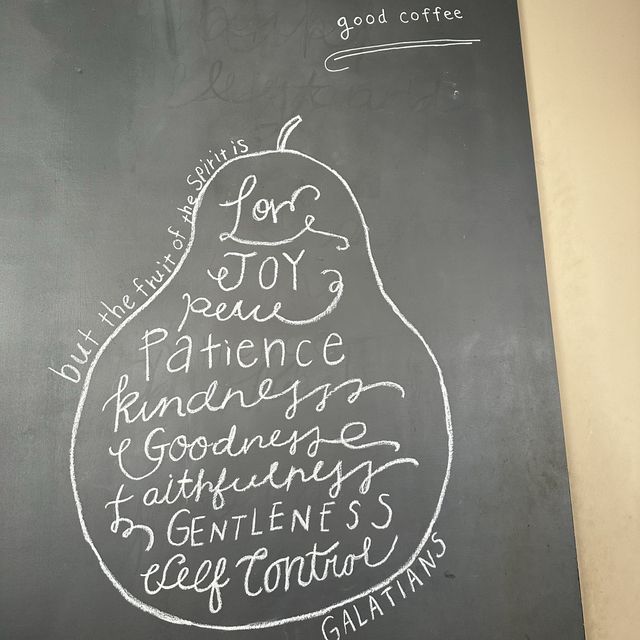 good coffee
but the fruit of the spirit is
Love
JOY
peace
Patience
kindness
Goodness
faithfulness
GENTLENESS
Self Control
GALATIANS